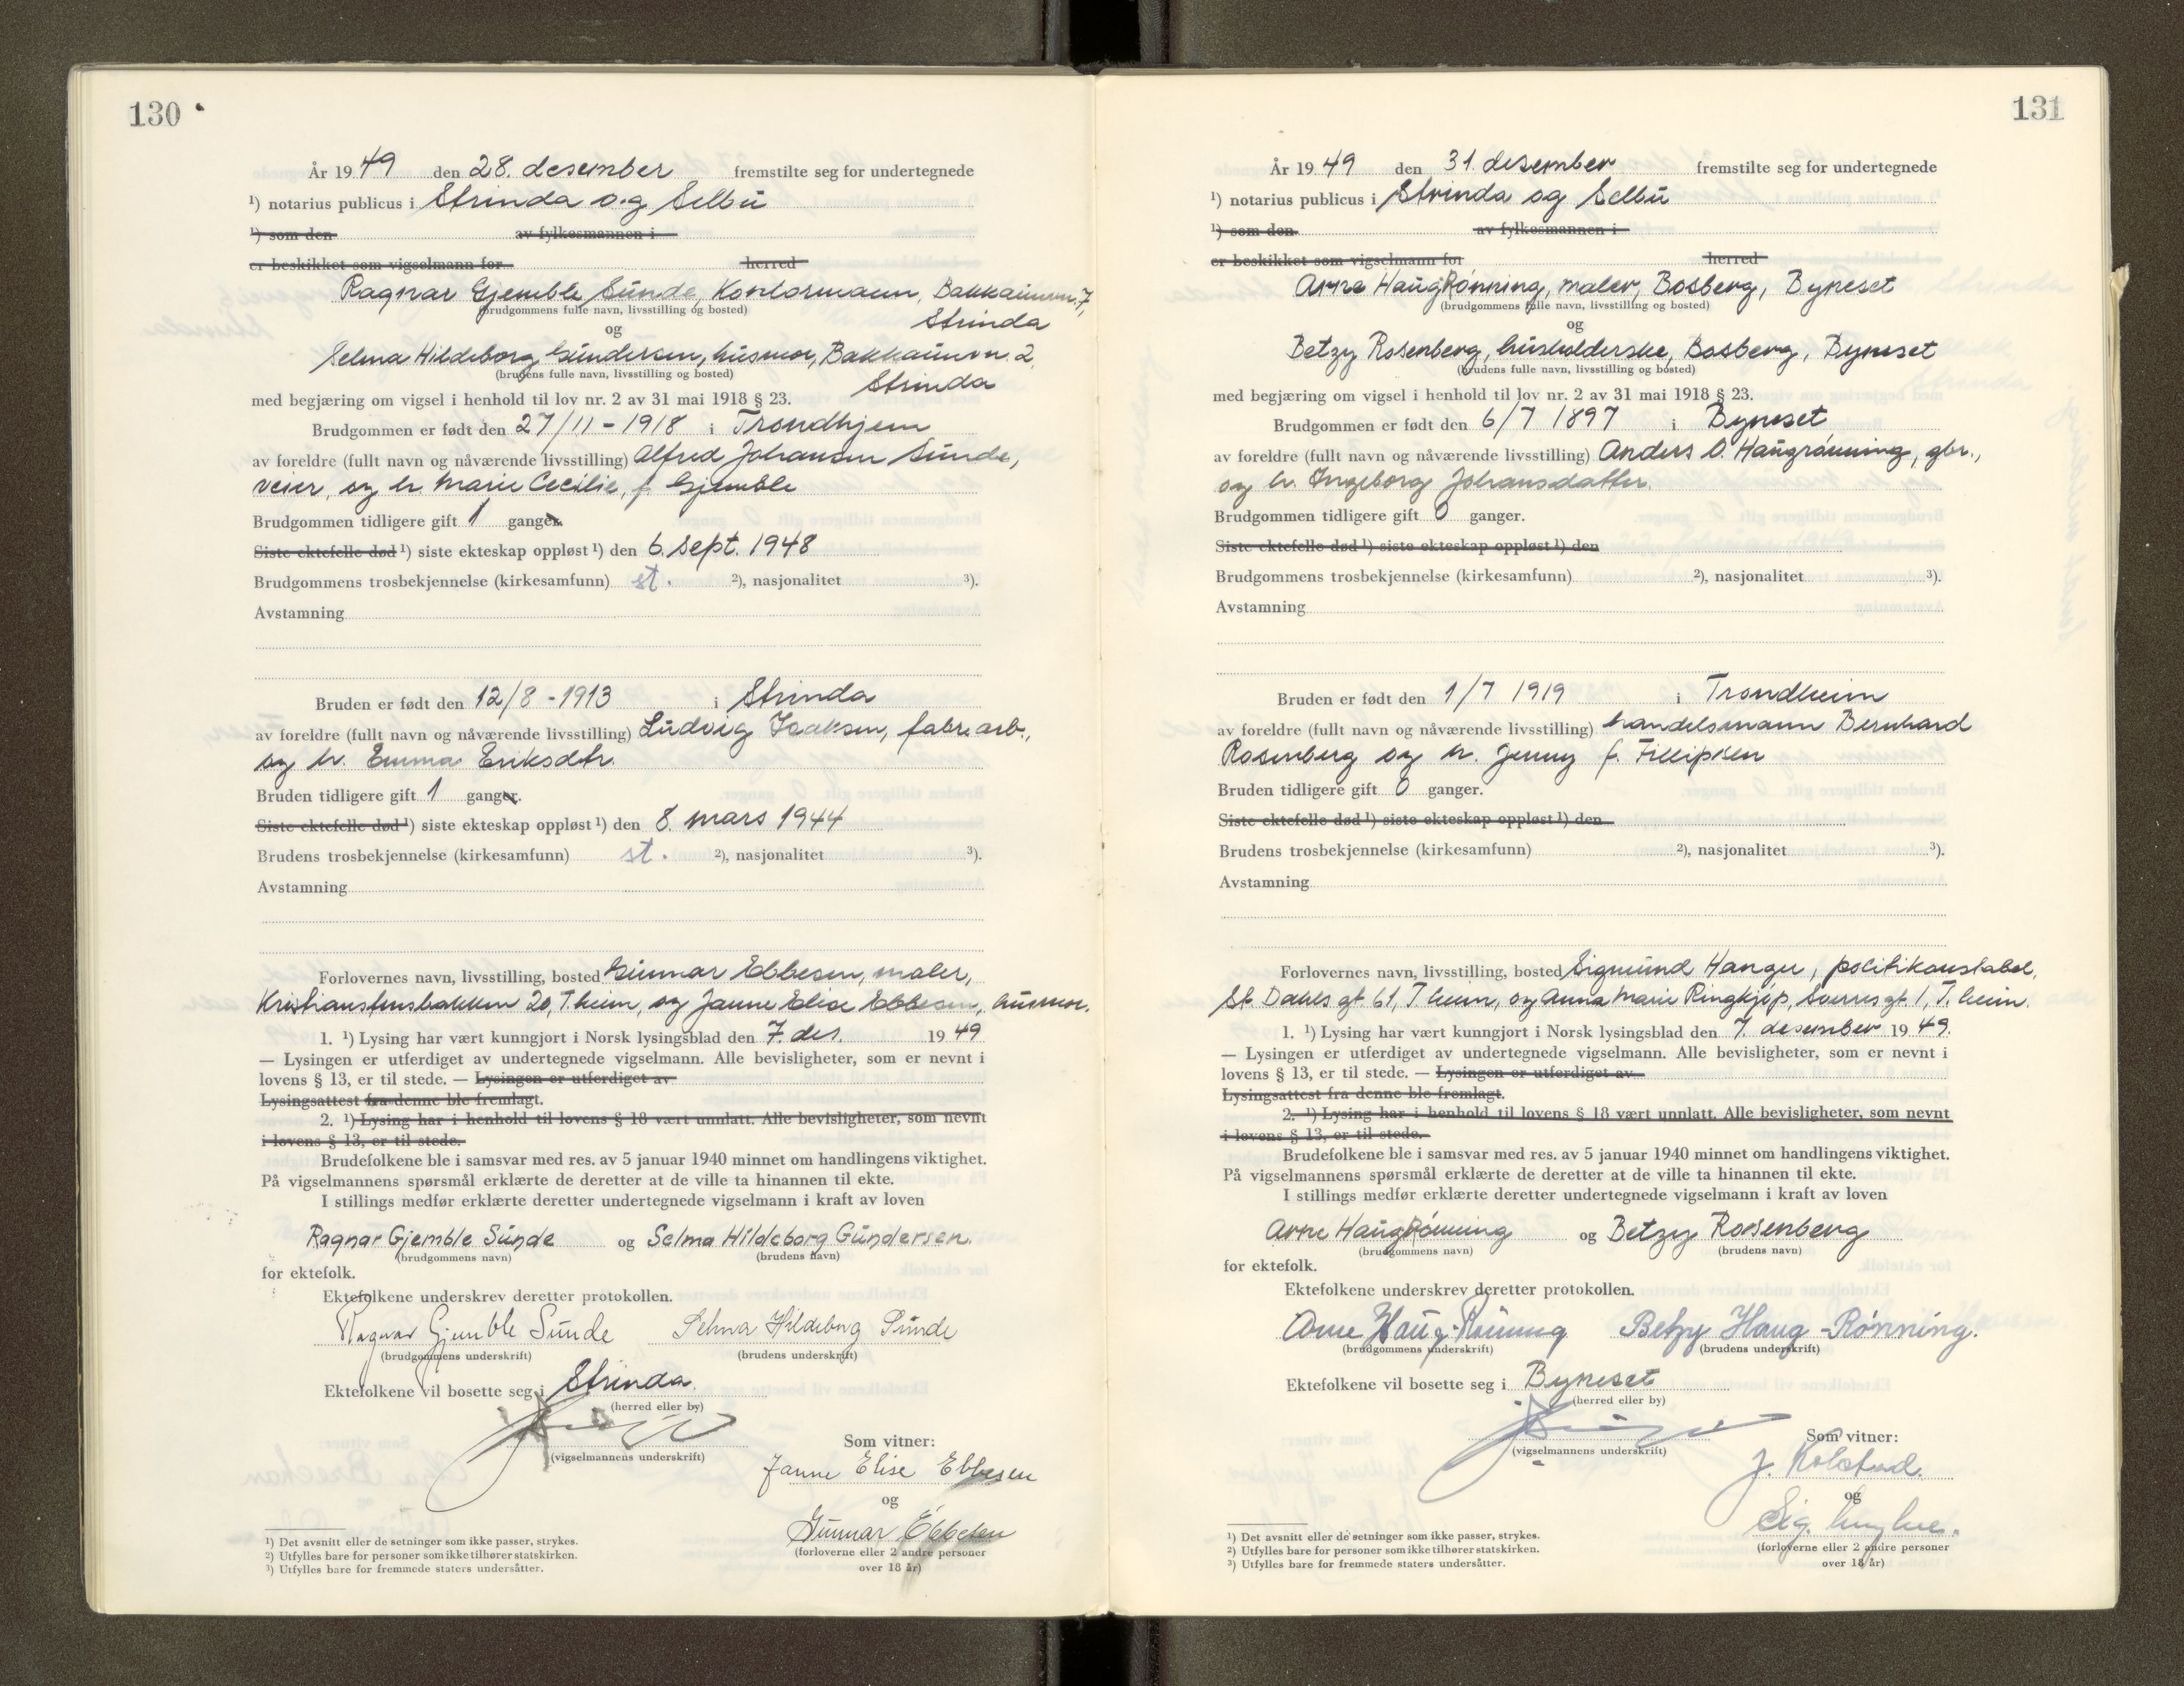 130
År 1949 den 28. desember fremstilte seg for undertegnede
¹) notarius publicus i Strinda og Selbu
¹) som den av fylkesmannen i
er beskikket som vigselmann for herred
Ragnar Gjemble Sunde, Kontormann, Bakkaunvn. 7,
(brudgommens fulle navn, livsstilling og bosted)
Strinda
og
Selma Hildeborg Gundersen, husmor, Bakkaunvn. 2,
(brudens fulle navn, livsstilling og bosted)
Strinda
med begjæring om vigsel i henhold til lov nr. 2 av 31 mai 1918 § 23.
Brudgommen er født den 27/11 - 1918 i Trondhjem
av foreldre (fullt navn og nåværende livsstilling) Alfred Johansen Sunde,
veier, og h. Marie Cecilie, f. Gjemble
Brudgommen tidligere gift 1 ganger.
Siste ektefelle død ¹) siste ekteskap oppløst ¹) den 6. sept. 1948
Brudgommens trosbekjennelse (kirkesamfunn) st. ²), nasjonalitet ³).
Avstamning
Bruden er født den 12/8 - 1913 i Strinda
av foreldre (fullt navn og nåværende livsstilling) Ludvig Isaksen, fabr.arb.,
og h. Emma Eriksdtr.
Bruden tidligere gift 1 ganger.
Siste ektefelle død ¹) siste ekteskap oppløst ¹) den 8. mars 1944
Brudens trosbekjennelse (kirkesamfunn) st. ²), nasjonalitet ³).
Avstamning
Forlovernes navn, livsstilling, bosted Gunnar Ebbesen, maler,
Kristianstensbakken 20, T.heim, og Janne Elise Ebbesen, husmor.
1. ¹) Lysing har vært kunngjort i Norsk lysingsblad den 7. des. 1949
— Lysingen er utferdiget av undertegnede vigselmann. Alle bevisligheter, som er nevnt i
lovens § 13, er til stede. — Lysingen er utferdiget av
Lysingsattest fra denne ble fremlagt.
2. ¹) Lysing har i henhold til lovens § 18 vært unnlatt. Alle bevisligheter, som nevnt
i lovens § 13, er til stede.
Brudefolkene ble i samsvar med res. av 5 januar 1940 minnet om handlingens viktighet.
På vigselmannens spørsmål erklærte de deretter at de ville ta hinannen til ekte.
I stillings medfør erklærte deretter undertegnede vigselmann i kraft av loven
Ragnar Gjemble Sunde og Selma Hildeborg Gundersen.
(brudgommens navn) (brudens navn)
for ektefolk.
Ektefolkene underskrev deretter protokollen.
Ragnar Gjemble Sunde Selma Hildeborg Sunde
(brudgommens underskrift) (brudens underskrift)
Ektefolkene vil bosette seg i Strinda.
(herred eller by)
(vigselmannens underskrift)
Som vitner:
Janne Elise Ebbesen
og
Gunnar Ebbesen
(forloverne eller 2 andre personer
over 18 år)
¹) Det avsnitt eller de setninger som ikke passer, strykes.
²) Utfylles bare for personer som ikke tilhører statskirken.
³) Utfylles bare for fremmede staters undersåtter.
131
År 1949 den 31. desember fremstilte seg for undertegnede
¹) notarius publicus i Strinda og Selbu
¹) som den av fylkesmannen i
er beskikket som vigselmann for herred
Arne HaugRønning, maler, Bosberg, Byneset
(brudgommens fulle navn, livsstilling og bosted)
og
Betzy Rosenberg, husholderske, Bosberg, Byneset
(brudens fulle navn, livsstilling og bosted)
med begjæring om vigsel i henhold til lov nr. 2 av 31 mai 1918 § 23.
Brudgommen er født den 6/7 1897 i Byneset
av foreldre (fullt navn og nåværende livsstilling) Anders O. Haugrønning, gbr.,
og h. Ingeborg Johansdatter.
Brudgommen tidligere gift 0 ganger.
Siste ektefelle død ¹) siste ekteskap oppløst ¹) den
Brudgommens trosbekjennelse (kirkesamfunn) ²), nasjonalitet ³).
Avstamning
Bruden er født den 1/7 1919 i Trondheim
av foreldre (fullt navn og nåværende livsstilling) handelsmann Bernhard
Rosenberg og h. Jenny f. Fillipsen
Bruden tidligere gift 0 ganger.
Siste ektefelle død ¹) siste ekteskap oppløst ¹) den
Brudens trosbekjennelse (kirkesamfunn) ²), nasjonalitet ³).
Avstamning
Forlovernes navn, livsstilling, bosted Sigmund Hanger, politikonstabel,
St. Dahls gt. 61, T.heim, og Anna Marie Ringkjøp, Sverres gt. 1, T.heim.
1. ¹) Lysing har vært kunngjort i Norsk lysingsblad den 7. desember 1949.
— Lysingen er utferdiget av undertegnede vigselmann. Alle bevisligheter, som er nevnt i
lovens § 13, er til stede. — Lysingen er utferdiget av
Lysingsattest fra denne ble fremlagt.
2. ¹) Lysing har i henhold til lovens § 18 vært unnlatt. Alle bevisligheter, som nevnt
i lovens § 13, er til stede.
Brudefolkene ble i samsvar med res. av 5 januar 1940 minnet om handlingens viktighet.
På vigselmannens spørsmål erklærte de deretter at de ville ta hinannen til ekte.
I stillings medfør erklærte deretter undertegnede vigselmann i kraft av loven
Arne HaugRønning og Betzy Rosenberg
(brudgommens navn) (brudens navn)
for ektefolk.
Ektefolkene underskrev deretter protokollen.
Arne Haug-Rønning Betzy Haug-Rønning.
(brudgommens underskrift) (brudens underskrift)
Ektefolkene vil bosette seg i Byneset
(herred eller by)
(vigselmannens underskrift)
Som vitner:
J. Kolstad.
og
Sig.
(forloverne eller 2 andre personer
over 18 år)
¹) Det avsnitt eller de setninger som ikke passer, strykes.
²) Utfylles bare for personer som ikke tilhører statskirken.
³) Utfylles bare for fremmede staters undersåtter.